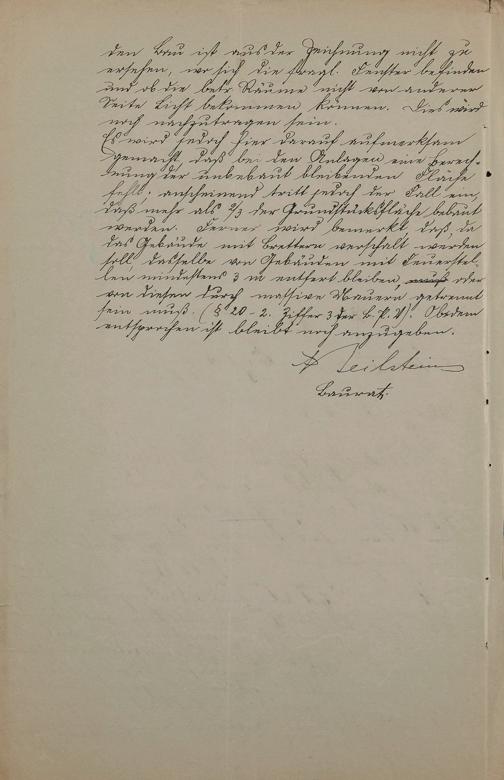 den Bau ist aus der Zeichnung nicht zu
ersehen, wo sich die fragl. Fenster befinden
und ob die betr. Räume nicht von anderer
Seite Licht bekommen können. Dies wird
noch nachzutragen sein.
Es wird jedoch hier darauf aufmerksam
gemacht, daß bei den Anlagen eine Berech-
nung der unbebaut bleibenden Fläche
fehlt, anscheinend tritt jedoch der Fall ein,
daß mehr als 2/3 der Grundstücksfläche bebaut
werden. Ferner wird bemerkt, daß, da
das Gebäude mit Brettern verschalt werden
soll, dasselbe von Gebäuden mit Feuerstel-
len mindestens 3 m entfernt bleiben, muß oder
von diesen durch massive Mauern getrennt
sein muß. (§ 20 - 2. Ziffer 3 der B.P.V.) Ob dem
entsprochen ist bleibt noch anzugeben.
Beilstein
Baurat.